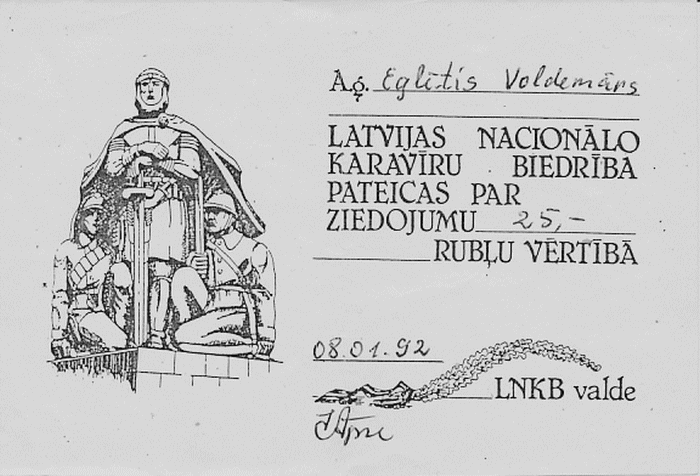 A.g. Eglītis Voldemārs
LATVIJAS NACIONĀLO
KARAVĪRU BIEDRĪBA
PATEICAS PAR
ZIEDOJUMU 25,-
RUBĻU VĒRTĪBĀ
08.01.92
LNKB valde